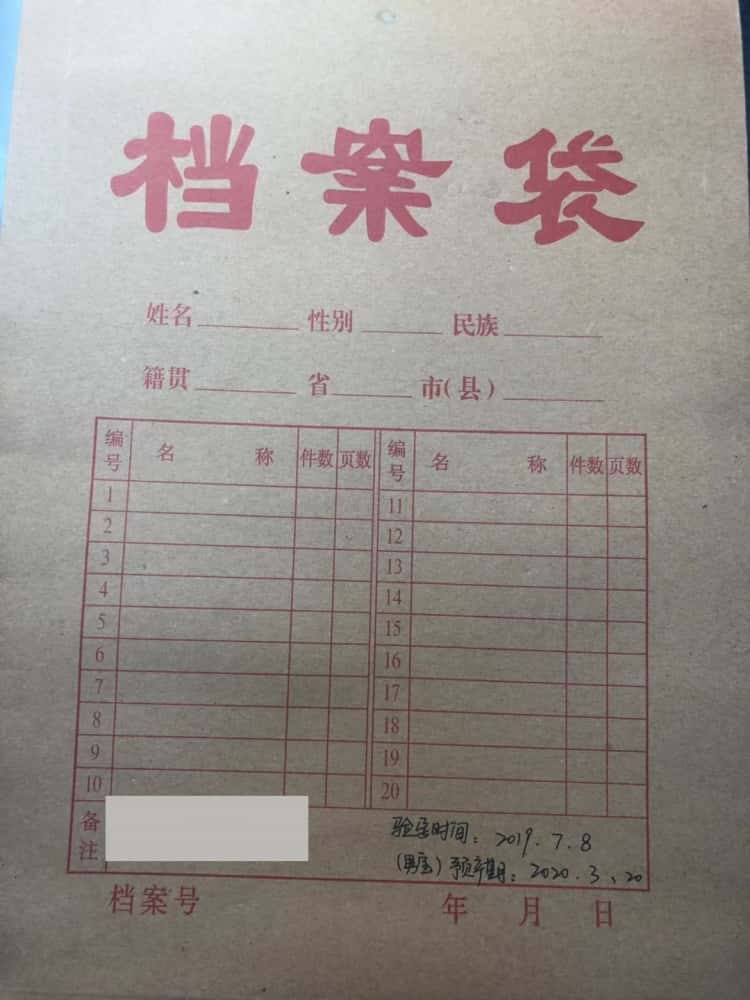 档案袋
姓名 性别 民族
籍贯 省 市(县)
编号 名称 件数 页数 编号 名称 件数 页数
1 11
2 12
3 13
4 14
5 15
6 16
7 17
8 18
9 19
10 20
备注 验孕时间：2019.7.8
(男宝)预产期：2020.3.20
档案号 年 月 日